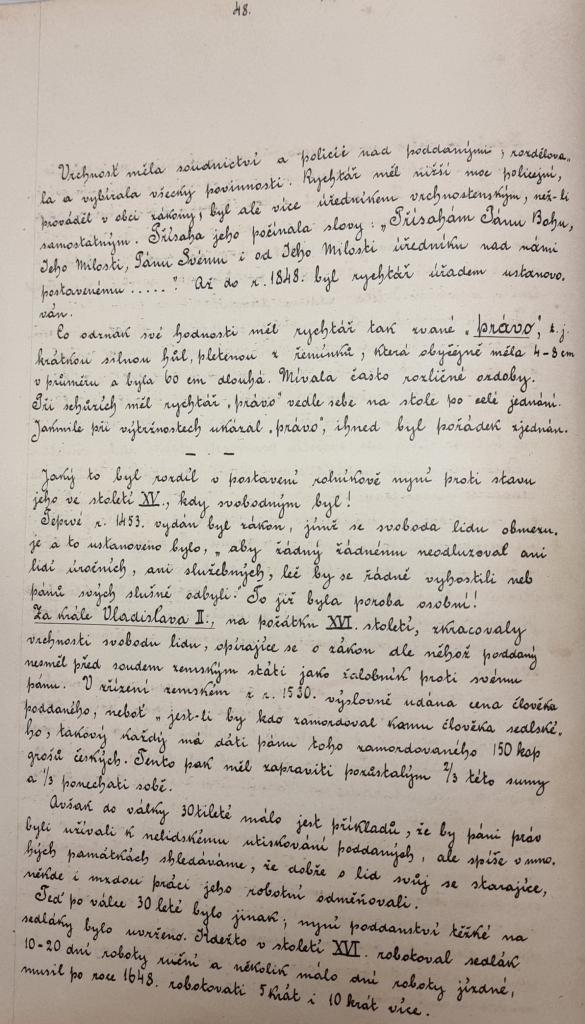 48.
Vrchnosť měla soudnictví a policii nad poddanými, rozdělova„
la a vybírala všecky povinnosti. Rychtář měl nižší moc policejní,
prováděl v obci zákony, byl ale více úředníkem vrchnostenským, než-li
samostatným. Přísaha jeho počínala slovy: „Přísahám Pánu Bohu,
Jeho Milosti, Pánu Svému i od Jeho Milosti úředníku nad námi
postavenému ....." Až do r. 1848. byl rychtář úřadem ustanovo.
ván.
Co odznak své hodnosti měl rychtář tak zvané „právo", t. j.
krátkou silnou hůl, pletenou z řemínků, která obyčejně měla 4-8 cm
v průměru a byla 60 cm dlouhá. Mívala často rozličné ozdoby.
Při schůzích měl rychtář „právo" vedle sebe na stole po celé jednání.
Jakmile při výtržnostech ukázal „právo", ihned byl pořádek zjednán.
— . —
Jaký to byl rozdíl v postavení rolníkově nyní proti stavu
jeho ve století XV., kdy svobodným byl!
Teprvé r. 1453. vydán byl zákon, jímž se svoboda lidu obmezu.
je a to ustanoveno bylo, „aby žádný žádnému neodluzoval ani
lidí úročních, ani služebných, leč by se řádně vyhostili neb
pánů svých slušně odbyli." To již byla poroba osobní!
Za krále Vladislava II., na počátku XVI. století, zkracovaly
vrchnosti svobodu lidu, opírajíce se o zákon dle něhož poddaný
nesměl před soudem zemským státi jako žalobník proti svému
pánu. V zřízení zemském z r. 1530. výslovně udána cena člověka
poddaného, neboť „jest-li by kdo zamordoval komu člověka sedlské„
ho, takový každý má dáti pánu toho zamordovaného 150 kop
grošů českých. Tento pak měl zapraviti pozůstalým 2/3 této sumy
a 1/3 ponechati sobě.
Avšak do války 30tileté málo jest příkladů, že by páni práv
byli užívali k nelidskému utiskování poddaných, ale spíše v mno.
hých památkách shledáváme, že dobře o lid svůj se starajíce,
někde i mzdou práci jeho robotní odměňovali.
Teď po válce 30leté bylo jinak; nyní poddanství těžké na
sedláky bylo uvrženo. Kdežto v století XVI. robotoval sedlák
10-20 dní roboty ruční a několik málo dní roboty jízdné,
musil po roce 1648. robotovati 5krát i 10krát více.